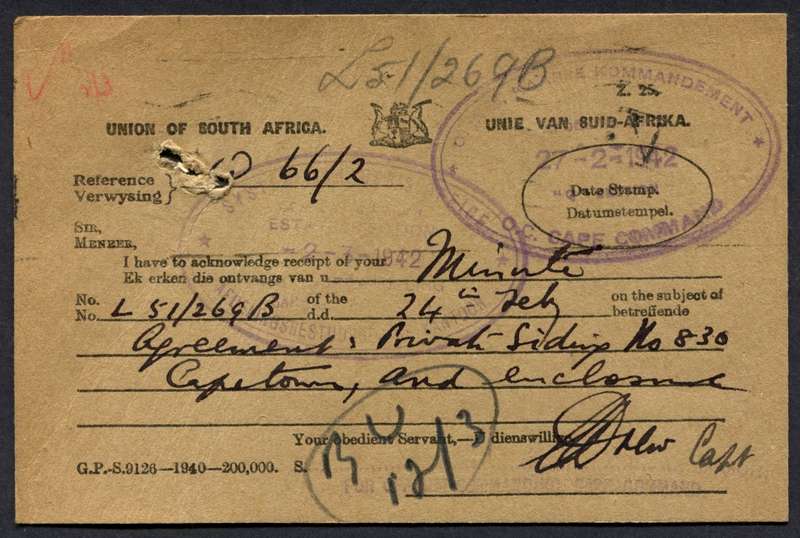 L51/269B
KOMMANDEMENT
Z. 25.
UNION OF SOUTH AFRICA.
UNIE VAN SUID-AFRIKA.
27-2-1942
Reference
Verwysing
66/2
Date Stamp.
Datumstempel.
O.C. CAPE COMMAND
SIR,
MENEER,
1942
I have to acknowledge receipt of your
Ek erken die ontvangs van u
Minute
No. L 51/269B of the 24th Feby on the subject of
No. d.d. betreffende
Agreement: Private Siding No 830
Capetown, and enclosure
Your obedient Servant,—U dienswillige
Capt
G.P.-S.9126—1940—200,000. S.
B U
12/3
FOR CAPE COMMAND